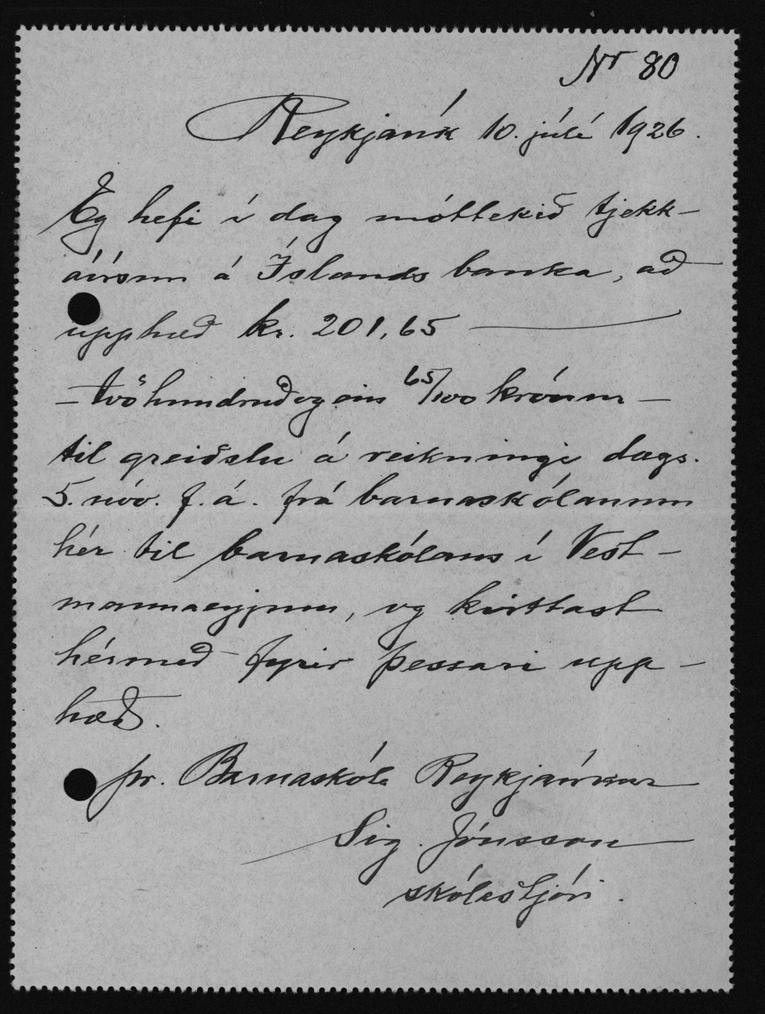 Nr 80
Reykjavík 10. júlí 1926.
Eg hefi í dag móttekið tjekk-
ávísun á Íslands banka, að
upphæð kr. 201,65
- tvöhundruðogein 65/100 krónur -
til greiðslu á reikningi dags.
5. nóv. f. á. frá barnaskólanum
hér til barnaskólans í Vest-
mannaeyjum, og kvittast
hérmeð fyrir þessari upp-
hæð.
pr. Barnaskóla Reykjavíkur
Sig. Jónsson
skólastjóri.